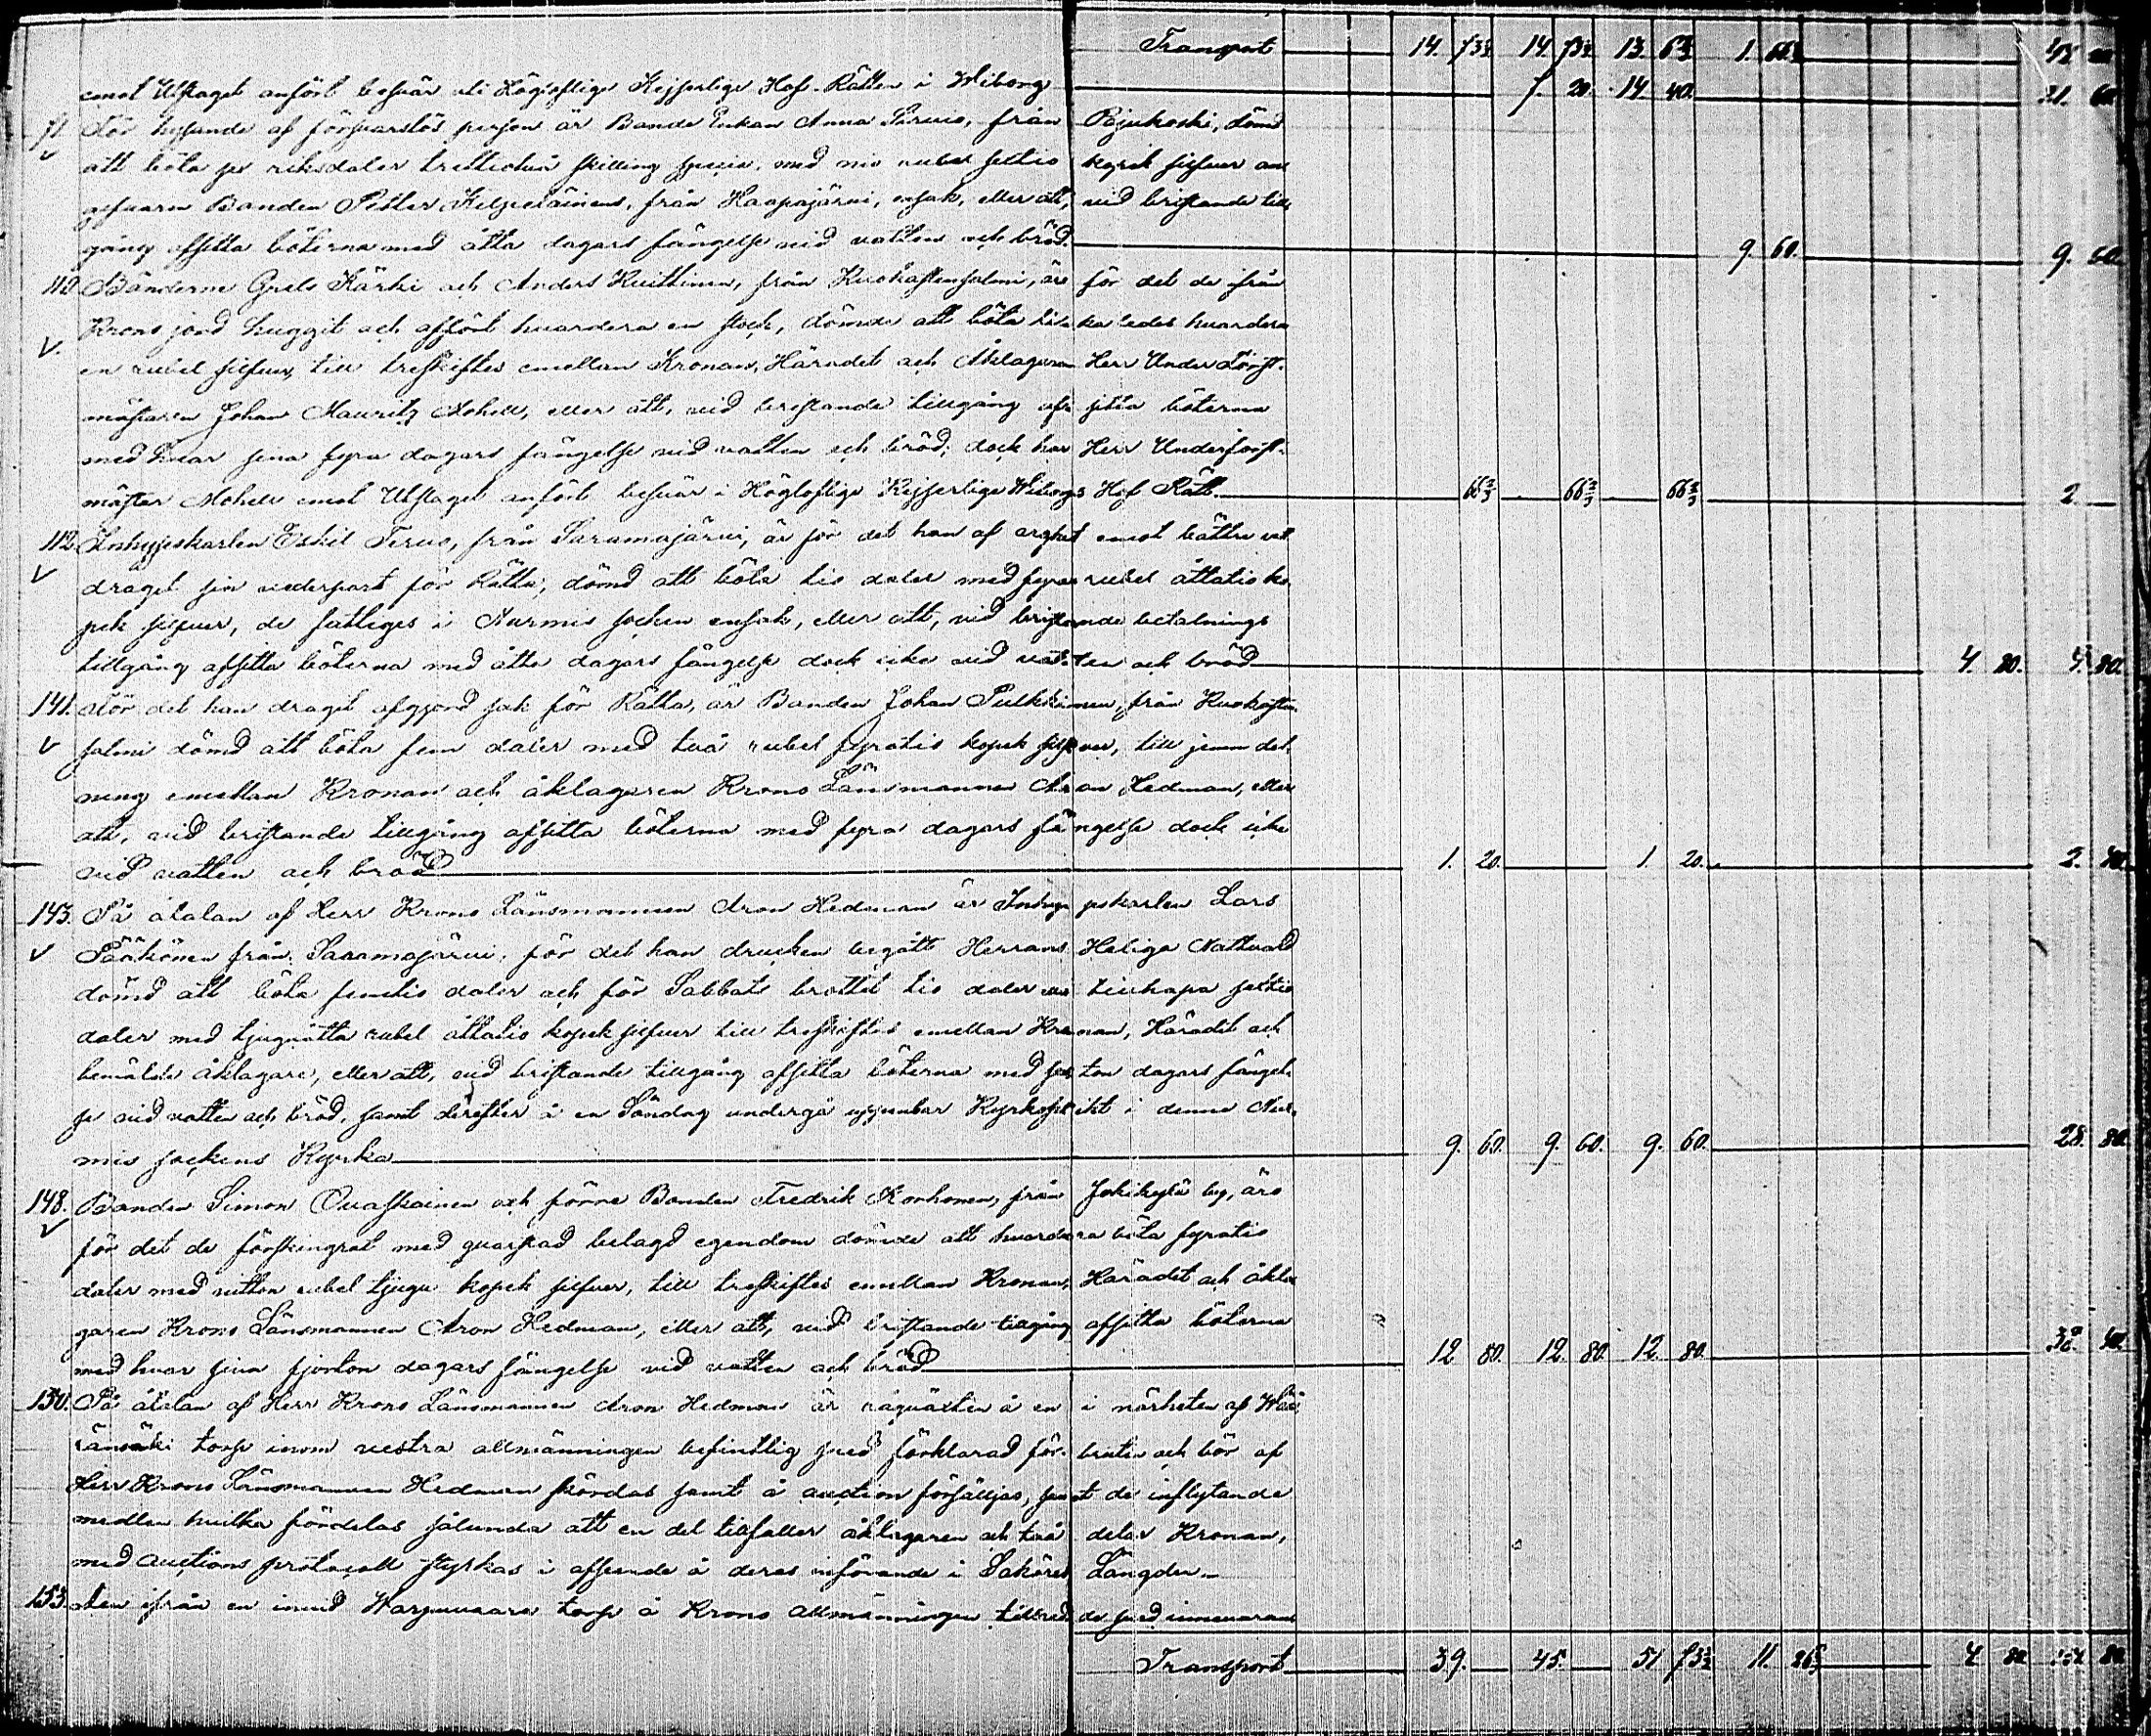 Transport 14. 73 1/3 14. 73 1/3 13. 6 2/3 1. 66 2/3
emot Utslaget anfört besvär uti Högloflige Kejserlige Hof-Rätten i Wiborg 7. 20. 14. 40. 21. 60.
71. För hysande af försvarslös person är Bonde Enkan Anna från Pajukoski, dömd
att böta sex riksdaler trettiotvå skilling specie, med nio rubel sextio kopek silfver an
gifvaren Bonden Petter Kilpeläinens, från Haapajärvi, ensak, eller att, vid bristande till
gång afsitta böterna med åtta dagars fängelse vid vatten och bröd. 9. 60. 9. 60.
112 Bönderne Grels Kärki och Anders Kuittinen, från Kuokastensalmi, äro för det de ifrån
Krono jord huggit och affört hvardera en stock, dömde att böta likaledes hvardera
en rubel silfver, till treskiftes emellan Kronan, Häradet och Åklagaren Herr Under Först-
mästaren Johan Mauritz Mohell, eller att, vid bristande tillgång afsitta böterna
med hvar sina fyra dagars fängelse vid vatten och bröd; dock har Herr Underförst-
mäster Mohell emot Utslaget anfört besvär i Högloflige Kejserlige Wiborgs Hof Rätt. 66 2/3 66 2/3 66 2/3 2.
112 Inhyseskarlen Eskil Tervo, från Saramojärvi, är för det han af arghet emot bättre vett
dragit sin vederpart för Rätta, dömd att böta tio daler med fyra rubel åttatio ko-
pek silfver, de fattiges i Nurmis socken ensak, eller att, vid bristande betalnings
tillgång afsitta böterna med åtta dagars fängelse dock icke vid vatten och bröd 4. 80. 4. 80.
141. För det han dragit afgjord sak för Rätta, är Bonden Johan Pulkkinen, från Kuokasten
salmi dömd att böta fem daler med två rubel fyratio kopek silfver, till jemn del-
ning emellan Kronan och åklagaren Krono Länsmannen Aron Hedman, eller
att, vid bristande tillgång afsitta böterna med fyra dagars fängelse dock icke
vid vatten och bröd 1. 20. 1. 20. 2. 40.
143. På åtalan af Herr Krono Länsmannen Aron Hedman är Inhyseskarlen Lars
från Saramojärvi, för det han drucken begått Herrans Heliga Nattvard
dömd att böta femtio daler och för Sabbats brottet tio daler tillhopa sextio
daler med tjuguåtta rubel åttatio kopek silfver till treskiftes emellan Kronan, Häradet och
bemälde åklagare, eller att, vid bristande tillgång afsitta böterna med sexton dagars fängel-
se vid vatten och bröd, samt derefter å en Söndag undergå uppenbar Kyrkoplikt i denne Nur-
mis sockens Kyrka 9. 60. 9. 60. 9. 60. 28. 80.
148. Bonden Simon Ovaskainen och förre Bonden Fredrik Korhonen, från Jokikylä by, äro
för det de förskingrat med qvarstad belagd egendom dömde att hvardera böta fyratio
daler med nitton rubel tjugu kopek silfver, till treskiftes emellan Kronan, Häradet och åkla
garen Krono Länsmannen Aron Hedman, eller att, vid bristande tillgång afsitta böterna
med hvar sina fjorton dagars fängelse vid vatten och bröd 12 80. 12. 80. 12. 80. 38. 40.
150. På åtalan af Herr Krono Länsmannen Aron Hedman är rågväxten å en i närheten af
torp inom vestra allmänningen befintlig sved förklarad för- bruten och bör af
Herr Krono Länsmannen Hedman skördas samt å auction försäljas, samt de inflytande
medlen hvilka fördelas sålunda att en del tillfaller åklagaren och två delar Kronan,
med auctions protocoll styrkas i afseende å deras införande i Saköres Längden.
153. Den ifrån en invid torp å Krono allmänningen
Transport 39. 45. 51 73 1/3 11. 26 2/3 4 80